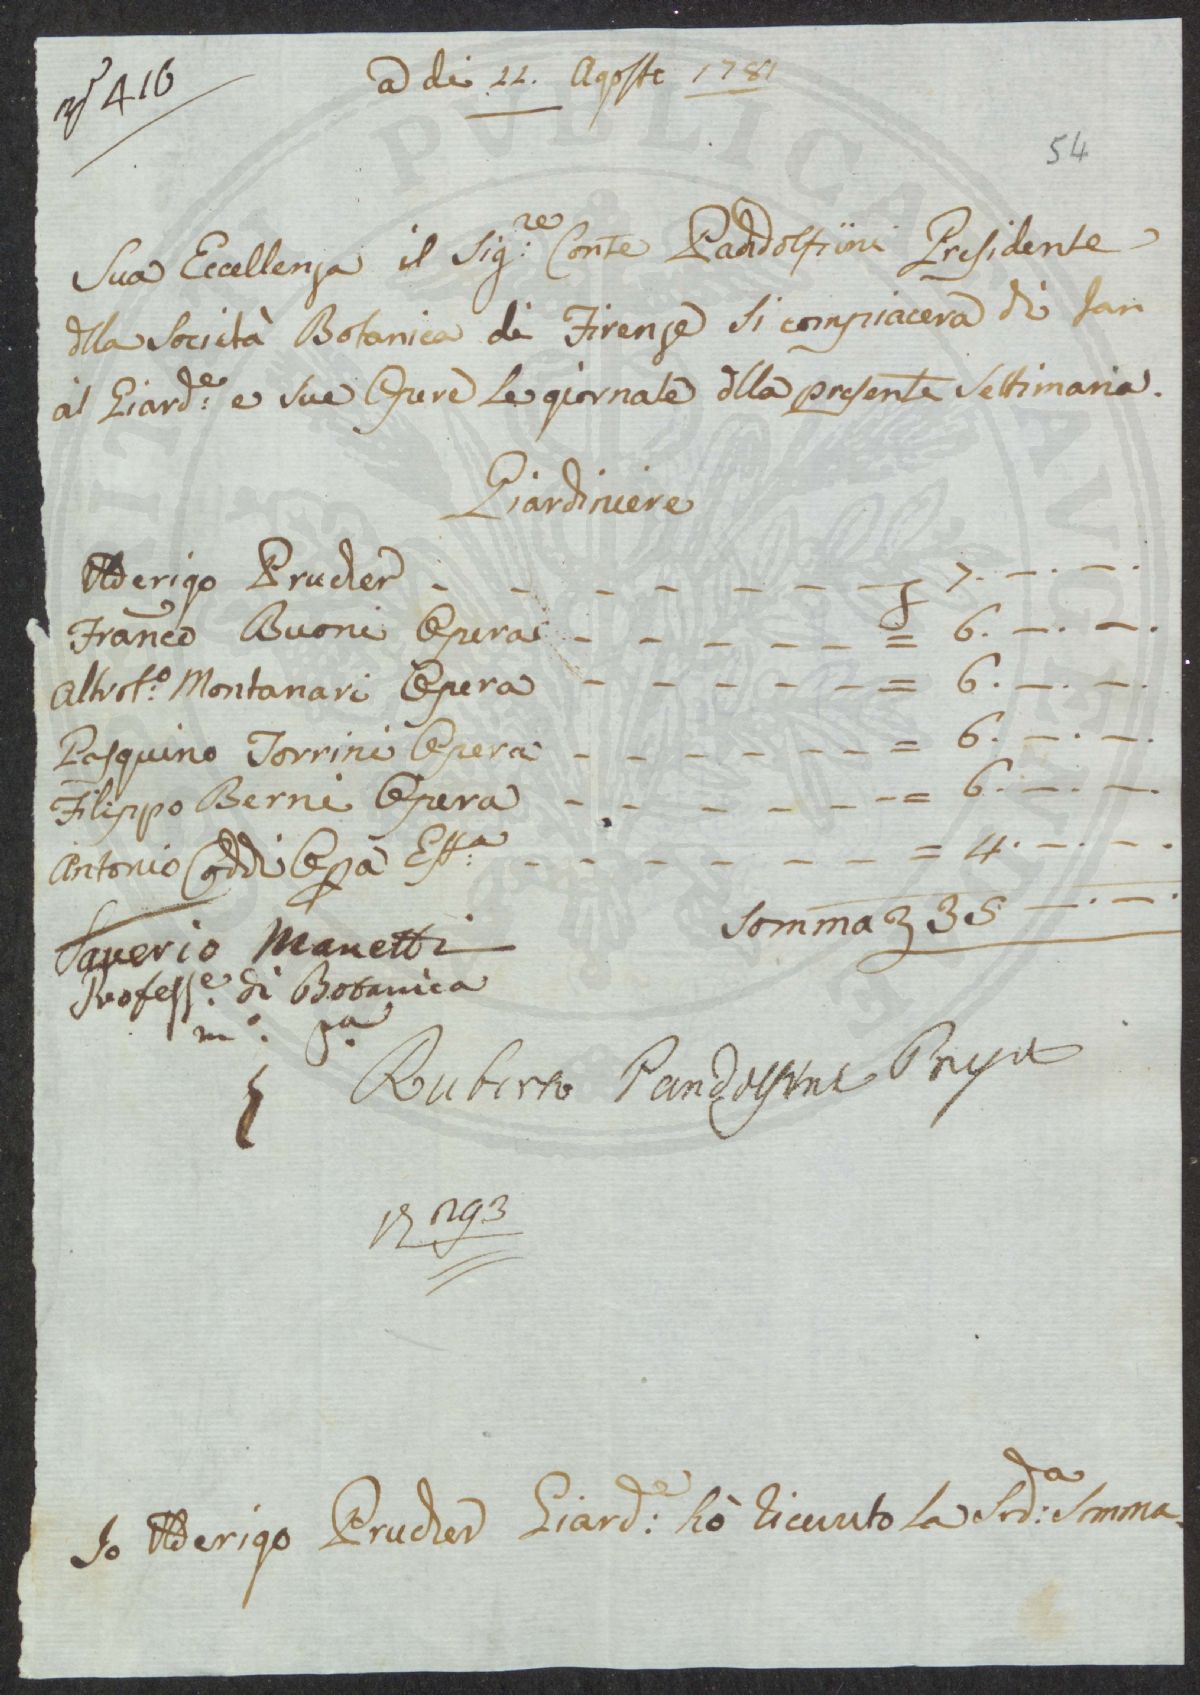 N° 416
a di 22. Agosto 1781
54
Sua Eccellenza il Sig:re Conte Pandolfini Presidente
dlla Società Botanica di Firenze si compiacerà di far
al Giard:e e sue Opere le giornate dlla presente Settimana.
Giardiniere
Adderigo Prucher - - - - - - - 7. —. —.
Franco Buoni Opera - - - - - = 6. —. —.
Montanari Opera - - - - - = 6. —. —.
Pasquino Torrini Opera - - - - - = 6. —. —.
Filippo Berni Opera - - - - - = 6. —. —.
Antonio Coddi Opa - - - - - - = 4. —. —.
Somma 35 —. —.
Saverio Manetti
Professe. di Botanica
mo. pa.
Ruberto Pandolfini
293
Io Adderigo Prucher Giard:e hò ricevuto la Sud:a Somma